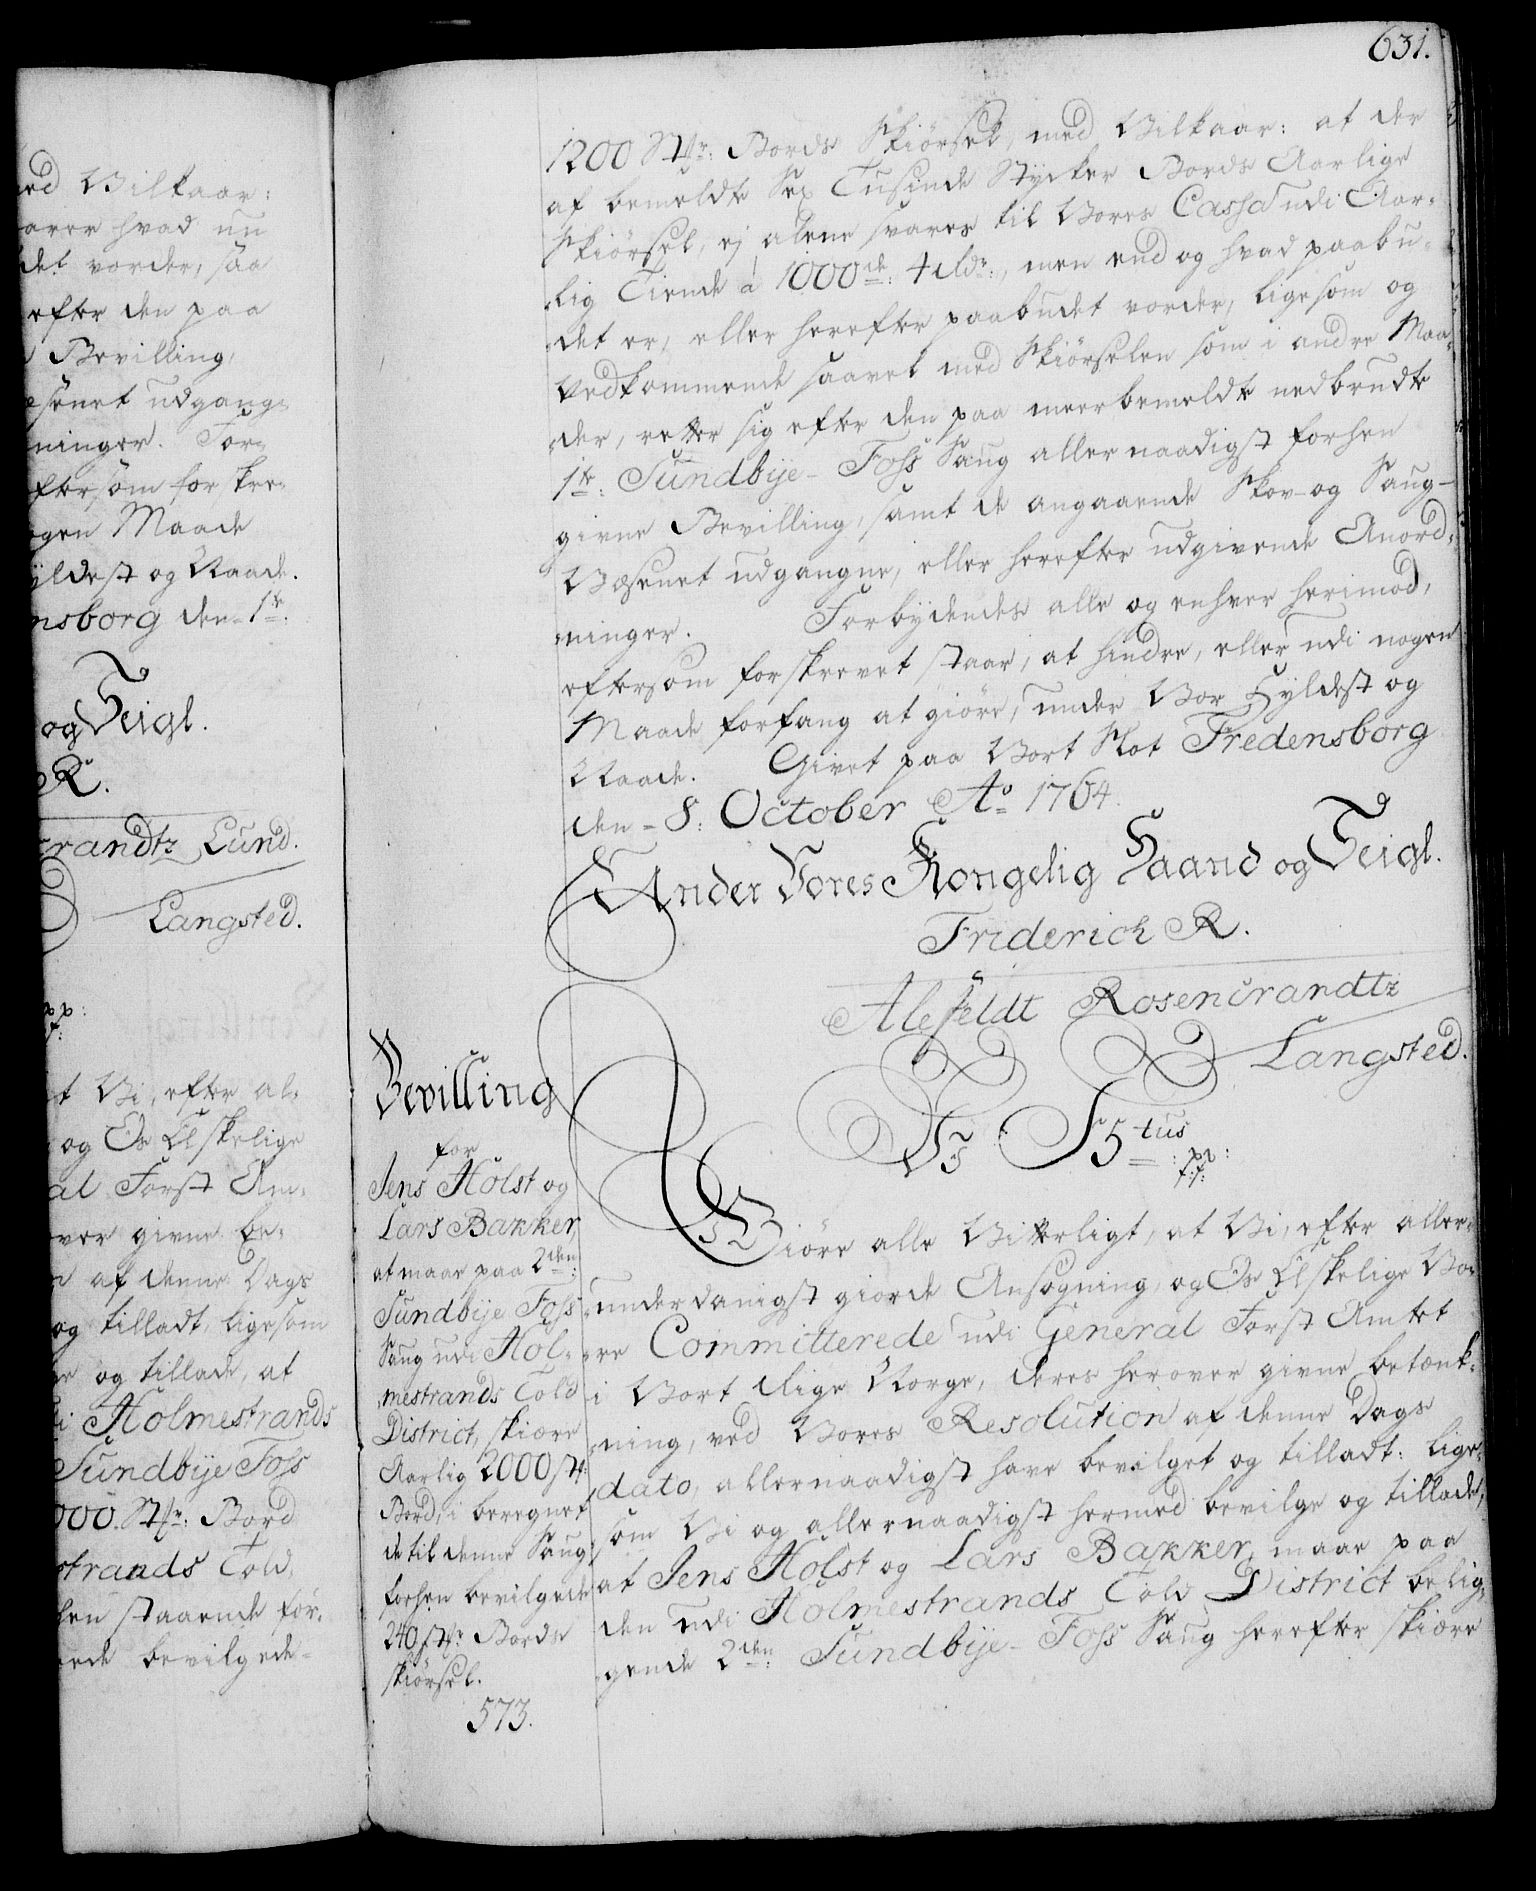 631.
1200 Stkr: Bords Skiörsel, med Vilkaar: at der
af bemeldte Sex Tusinde Stycker Bords Aarlige
Skiörsel, ej alene svares til Vores Cassa udi Aar-
lig Tiende á 1000de: 4 rdr:, men end og hvad paabu-
det er, eller herefter paabudet vorder, ligesom og
Vedkommende saavel med Skiörselen som i andre Maa-
der, retter sig efter den paa meerbemeldte nedbrudte
1te: Sundbÿe-Foss Saug allernaadigst forhen
givne Bevilling, samt de angaaende Skov- og Saug-
Væsenet udgangne, eller herefter udgivende Anord-
ninger. Forbydendes alle og enhver herimod,
eftersom forskrevet staar, at hindre, eller udi nogen
Maade forfang at giöre, under Vor Hyldest og
Naade. Givet paa Vort Slot Fredensborg
den-8: October Ao 1764.
Under Vores Kongelig Haand og Seigl.
Friderich R.
Alefeldt Rosencrandtz
Langsted.
Bevilling
for
Jens Holst og
Lars Bakker
at maae paa 2den:
Sundbÿe Foss
Saug udi Hol-
mestrands Told
District, skiære
Aarlig 2000 stk:
Bord, i beregnet
de til denne Saug
forhen bevilgede
240 stkr: Bords
skiörsel.
573.
Vs: F5tus
: pp:
f:f:
Giöre alle Vitterligt, at Vi, efter aller-
underdanigst giorde Ansögning, og Os Elskelige Vo-
re Committerede udi General Forst Amtet
i Vort Rige Norge, deres herover givne betænk-
ning, ved Vores Resolution af denne Dags
dato, allernaadigst have bevilget og tilladt: lige-
som Vi og allernaadigst hermed bevilge og tillade,
at Jens Holst og Lars Bakker, maae paa
den udi Holmestrands Told District belig-
gende 2den: Sundbÿe-Foss Saug herefter skiære
ed Vilkaar:
arer hvad nu
det vorder, saa
efter den paa
Bevilling,
senet udgang-
ninger. For-
eftersom forskre-
ogen Maade
yldest og Naade.
nsborg den-1te:
og Seigl.
R.
crandtz Lund.
Langsted.
pp:
f:
t Vi, efter al-
og Os Elskelige
al Forst Am-
ver givne be-
n af denne Dags
og tilladt, ligesom
ge og tillade, at
i Holmestrands
Sundbÿe Foss
000. Stkr: Bord
strands Told
len staaende for-
ede bevilgede-